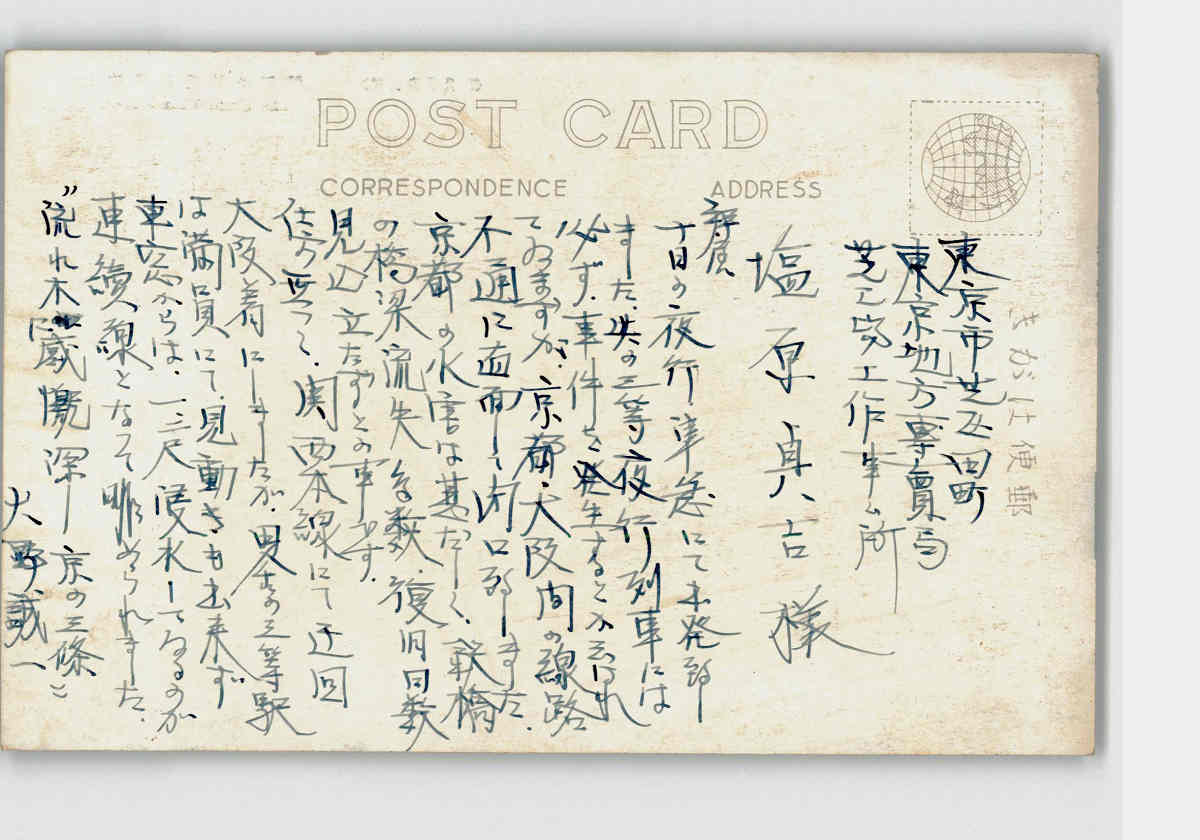 POST CARD
CORRESPONDENCE
ADDRESS
郵便はがき
東京市芝区田町
東京地方専賣局
芝工場工作事ム所
塩原貞吉様
拝啓
十日の夜行準急にて出発致し
ました。此の三等夜行列車には
必ず事件を発生すると云はれ
てゐますが、京都大阪間の線路
不通に面して閉口致しました。
京都の水害は甚だしく、鉄橋
の橋梁流失多数、復旧日数
見込立たずとの事です。
仕方無く、関西本線にて迂回
大阪着にしましたが、田舎の三等駅
は満員にて、身動きも出来ず
車窓からは、一二尺浸水してゐるのが
連續線となって眺められました。
"流れ木に感慨深し京の三條"
大野誠一